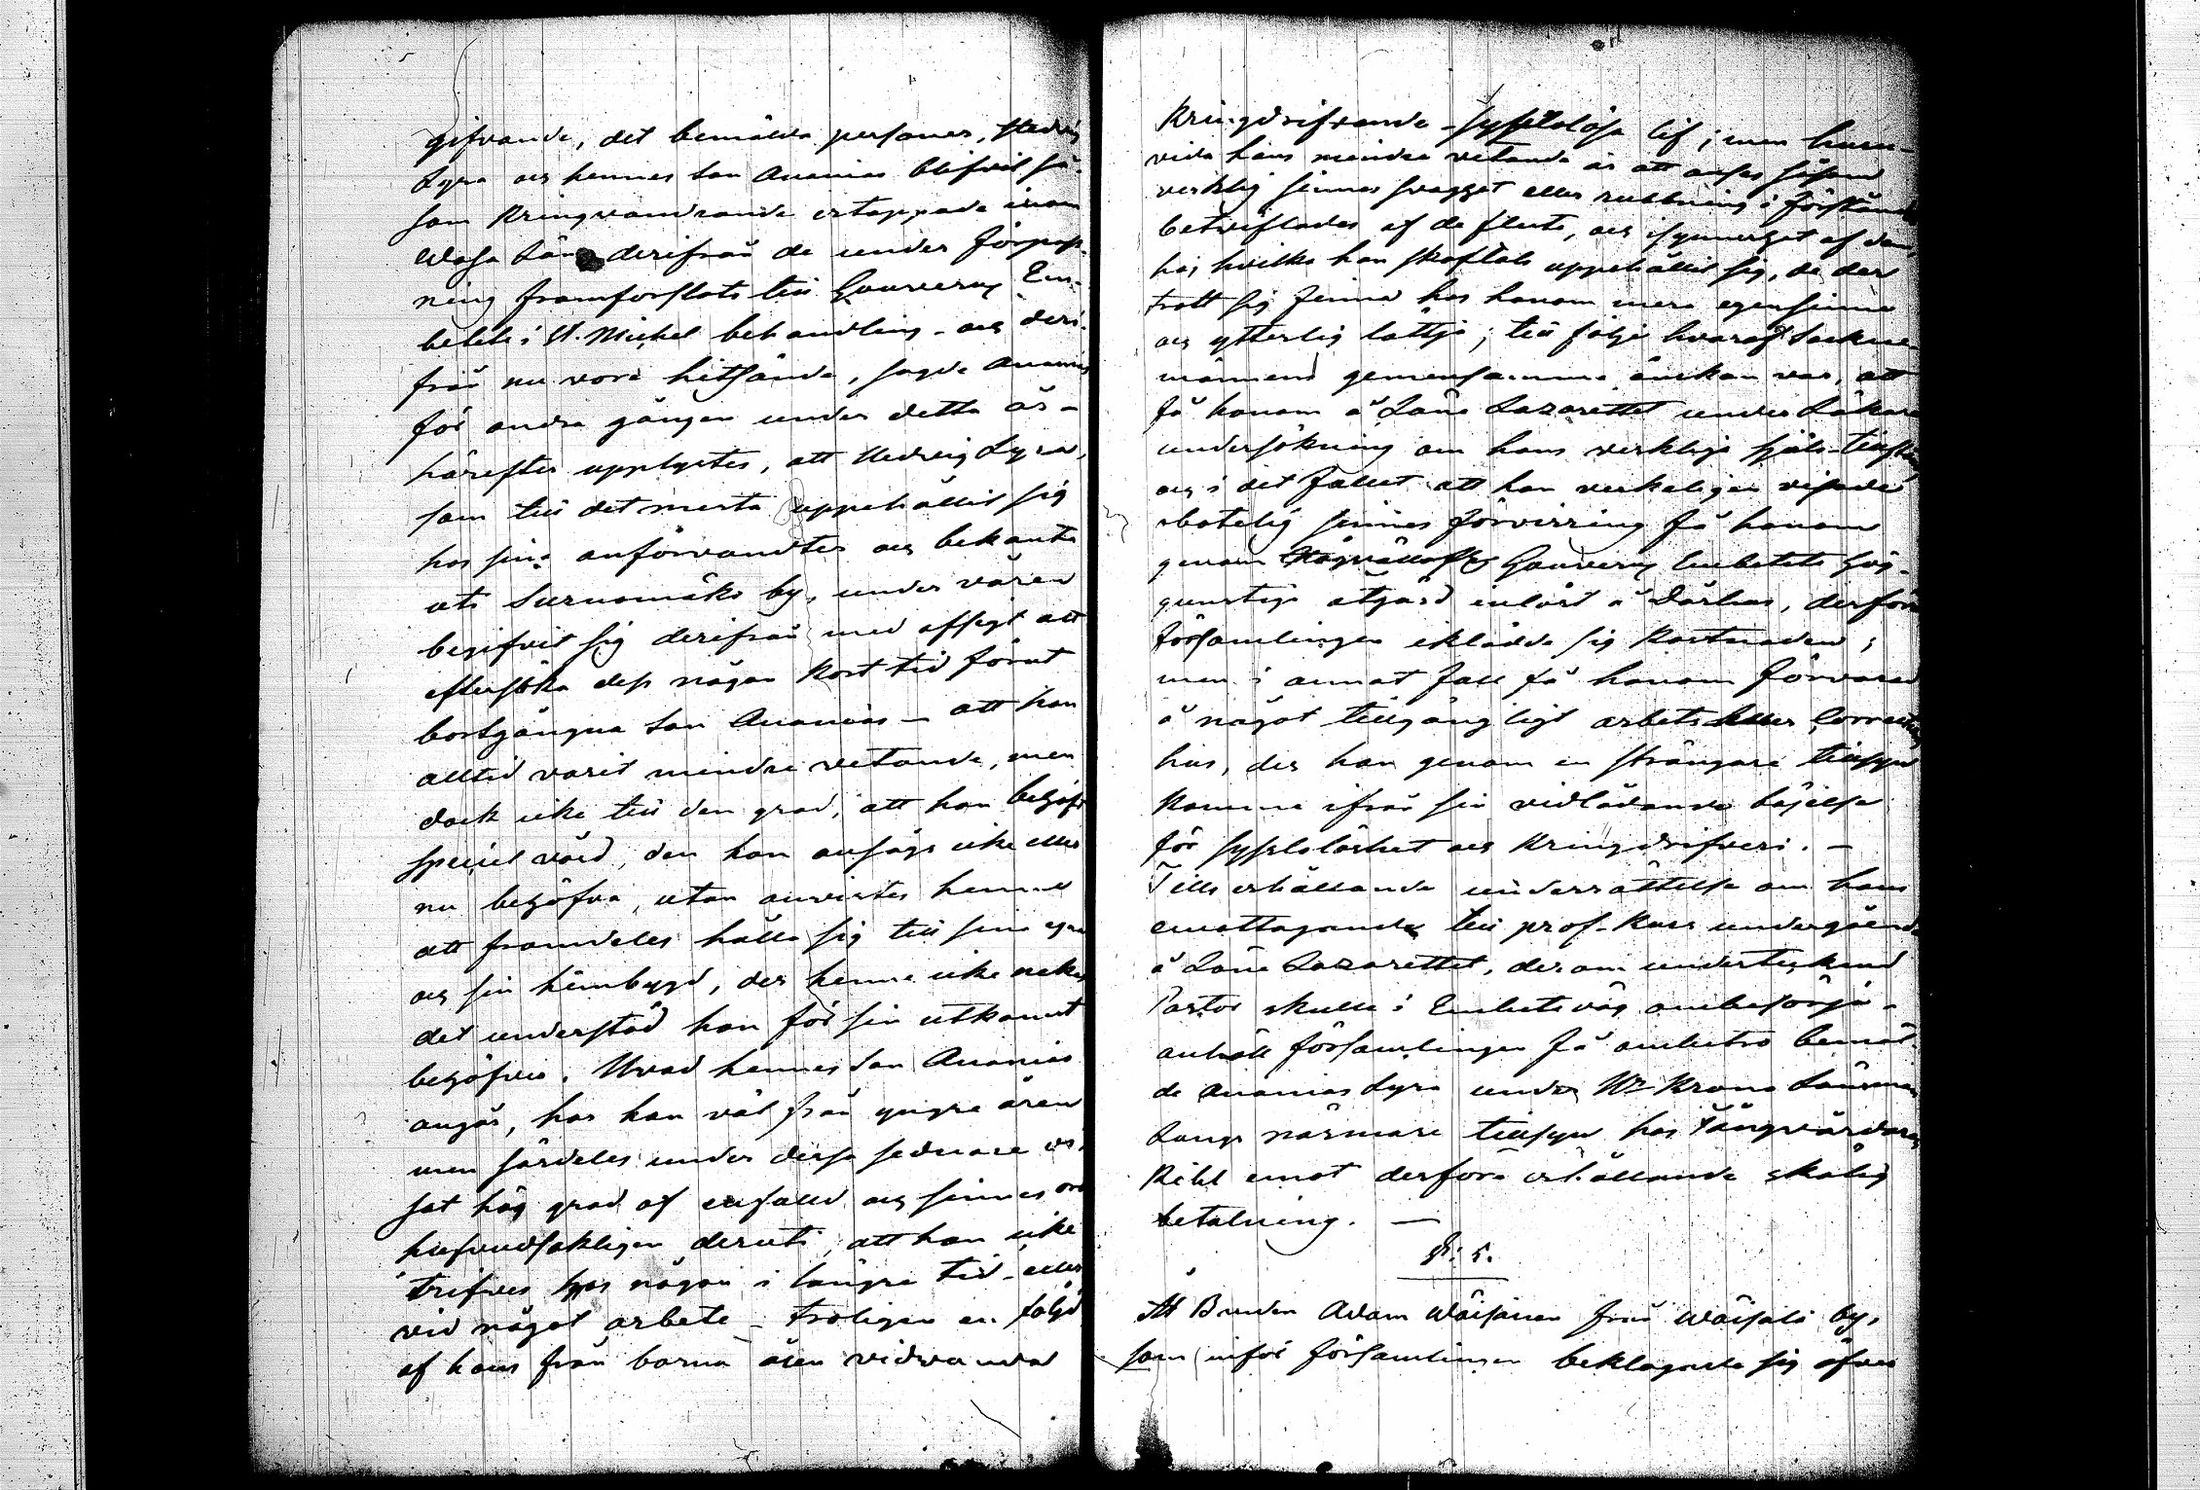 gifvande, det bemälda personer, Hedvig
Lyra och hennes son Ananias blifvit så-
som kringvandrande ertappade inom
Wasa Län derifrån de under förpass-
ning framforslats till Gouvern Em-
betets i St. Michel behandling - och deri-
från nu vore hitsände, sagde Ananias
för andra gången under detta år -
härefter upplystes, att Hedvig Lyra,
som till det mesta uppehållit sig
hos sina anförvandter och bekanta
uti Surnumäki by, under våren
begifvit sig derifrån med afsigt att
eftersöka dess någon kort tid förut
bortgångna son Ananias - att hon
alltid varit mindre vetande, men
dock icke till den grad, att hon behöft
speciel vård, den hon ansågs icke eller
nu behöfva, utan anvistes henne
att framdeles hålla sig till sina egna
och sin hembygd, der henne icke nekas
det understöd hon för sin utkomst
behöfver. Hvad hennes son Ananias
angår, har han väl från yngre åren
men särdeles under dessa sednare vi-
sat hög grad af enfald och sinnes oro
hufvudsakligen deruti, att han icke
trifves hos någon i längre tid - eller
vid något arbete - troligen en följd
af hans från barna åren vidvanda
kringdrifvande - sysslolösa lif; men huru-
vida hans mindre vetande är att anses såsom
verklig sinnes svaghet eller rubbning i förståndet
betviflades af de flesta, och isynnerhet af dem,
hos hvilka han skaftals uppehållit sig, de der
trott sig finna hos honom mera egensinne
och ytterlig lättja; till följe hvaraf Sockne-
männens gemensamma önskan var, att
få honom å Läns Lazarettet under Läkare
undersökning om hans verkliga själs-tillstånd
och i det fallet att han verkeligen visade
obotelig sinnes förvirring få honom
genom Gouvern Embetets hög-
gunstiga åtgärd inlöst å Dårhus, derför
församlingen iklädde sig kostnaden;
men i annat fall få honom förvarad
å något tillgängligt arbets eller Corrections
hus, der han genom en strängare tillsyn
komme ifrån sin vidlådande böjelse
för sysslolöshet och kringdrifveri. -
Tills erhållande underrättelse om hans
emottagande till prof-kurs undergående
å Läns Lazarettet, derom undertecknad
Pastor skulle i Embets väg ombesörja -
anhöll församlingen få anbetro bemäl-
de Ananias Lyra under Hr Krono Länsman
Langs närmare tillsyn hos Fångvårdaren
Rihl emot derföre erhållande skälig
betalning. -
§: 5.
At Bonden Adam Wäisänen från Wäisälä by,
som inför församlingen beklagade sig öfver